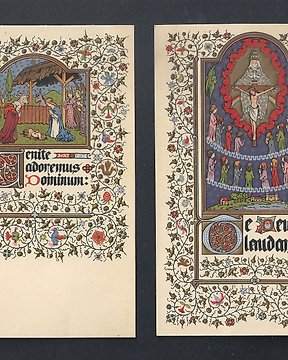 Venite
adoremus
Dominum:
Te Deu
laudam